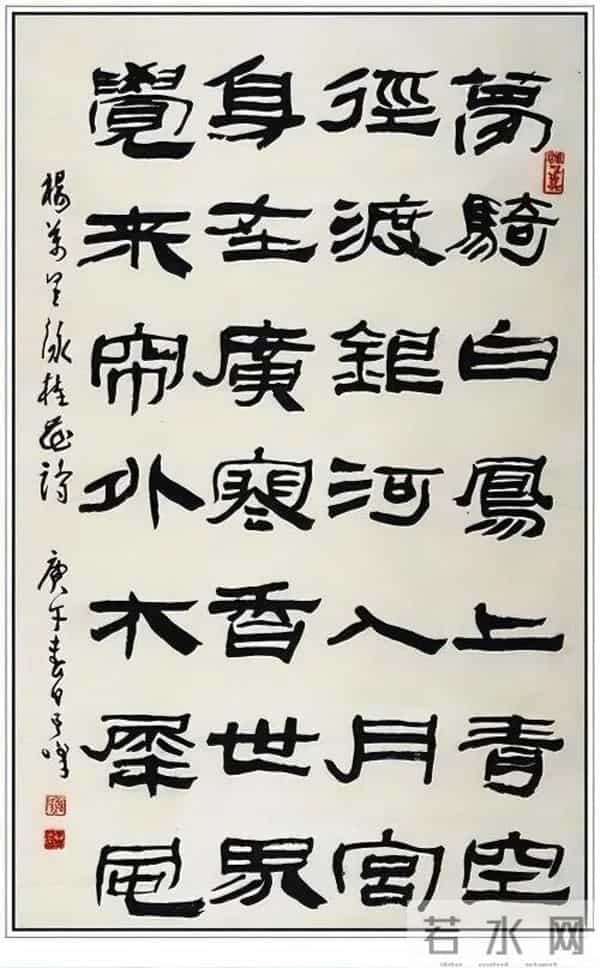 夢騎白鳳上青空
徑渡銀河入月宮
身在廣寒香世界
覺來帘外木犀風
楊萬里詠桂花詩 庚午春日
若水网